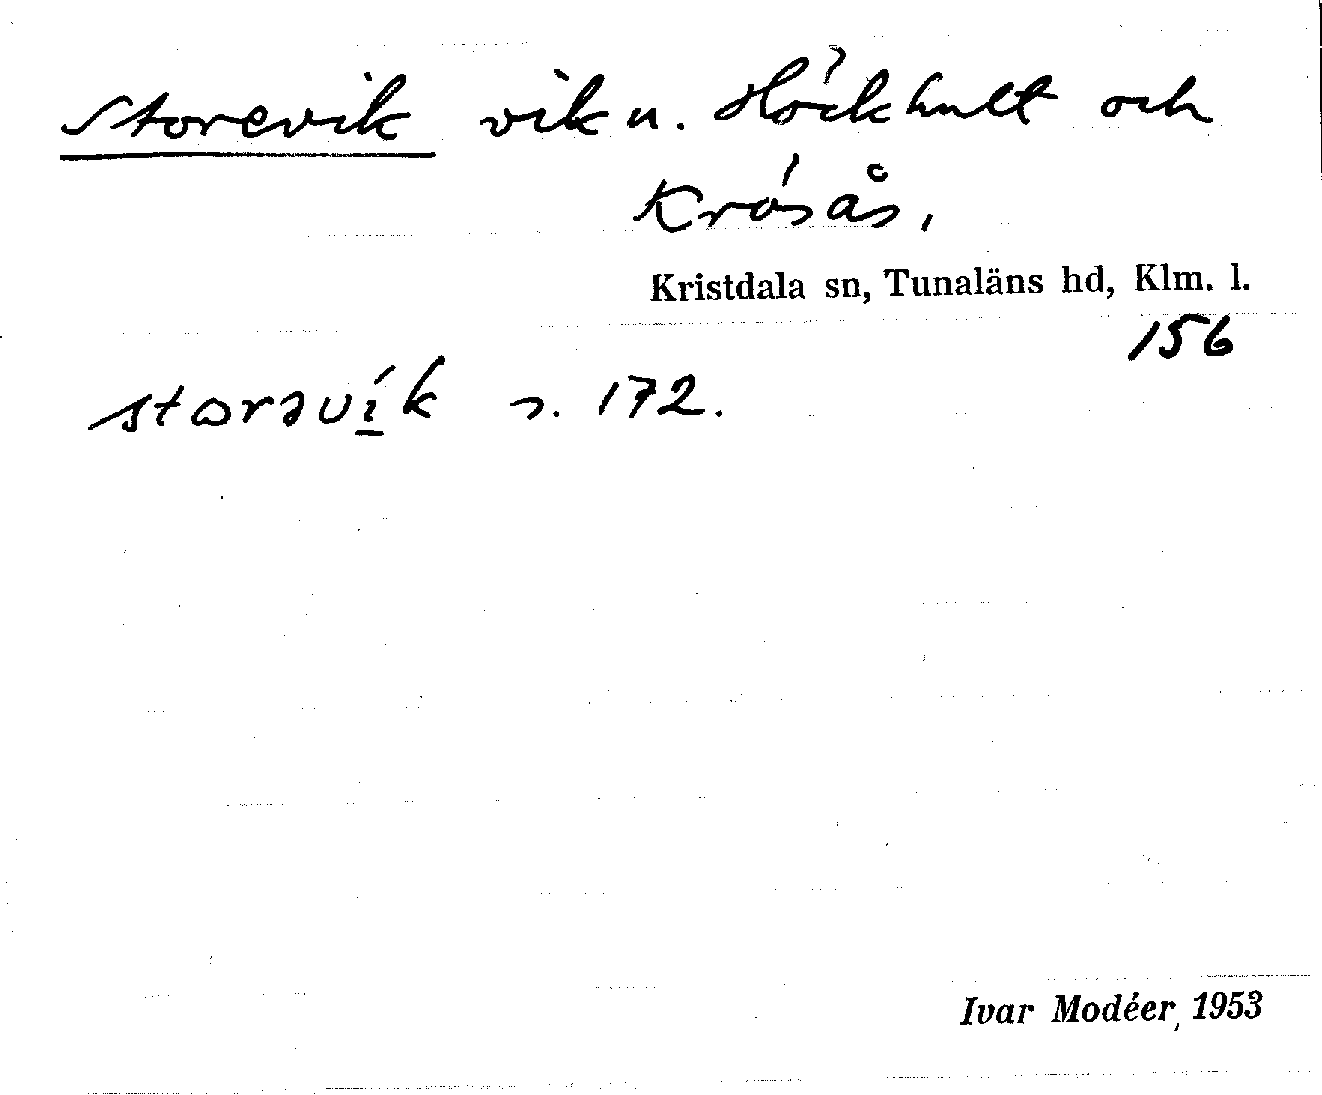 Storevik vik u. Höckhult och
Krösås,
Kristdala sn, Tunaläns hd, Klm. l.
156
storəvík s. 172.
Ivar Modéer, 1953